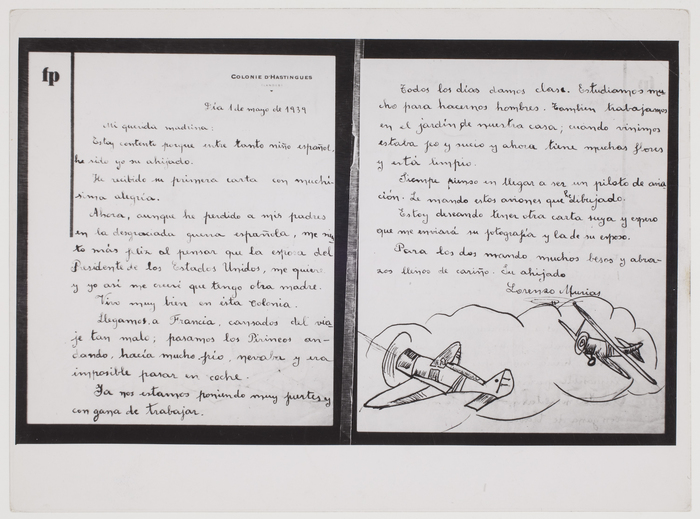 fp
COLONIE D'HASTINGUES
Día 1 de mayo de 1939
Mi querida madrina:
Estoy contento porque entre tanto niño español,
he sido yo su ahijado.
He recibido su primera carta con muchí-
sima alegría.
Ahora, aunque he perdido a mis padres
en la desgraciada guerra española, me siento
más feliz al pensar que la esposa del
Presidente de los Estados Unidos, me quiere
y yo así me creeré que tengo otra madre.
Vivo muy bien en ésta Colonia.
Llegamos, a Francia, cansados del via-
je tan malo; pasamos los Pirineos an-
dando, hacía mucho frío, nevaba y era
imposible pasar en coche.
Ya nos estamos poniendo muy fuertes y
con gana de trabajar.
Todos los días damos clase. Estudiamos mu-
cho para hacernos hombres. Tambien trabajamos
en el jardín de nuestra casa; cuando vinimos
estaba feo y sucio y ahora tiene muchas flores
y está limpio.
Siempre pienso en llegar a ser un piloto de avia-
ción. Le mando estos aviones que he dibujado.
Estoy deseando tener otra carta suya y espero
que me enviará su fotografía y la de su esposo.
Para los dos mando muchos besos y abra-
zos llenos de cariño. Su ahijado
Lorenzo Murias